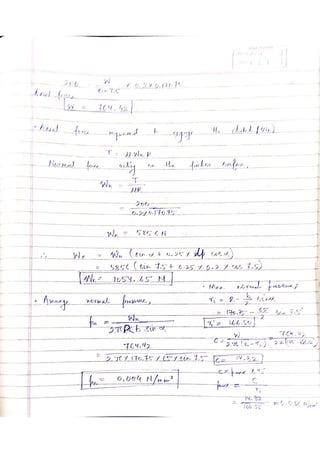 200 = W/sin 7.5 × 0.2 × 0.17075
Axial force
W = 764.42
• Axial force required to engage the clutch (We)
T = μ Wn R
Normal force acting on the friction surface,
Wn = T/μR
= 200/0.2×0.17075
Wn = 5856 N
∴ We = Wn (sin α + 0.25 × μ cos α)
= 5856 (sin 7.5 + 0.25 × 0.2 × cos 7.5)
We = 1054.65 N
• Average normal pressure,
pn = Wn/2πRb sin α
= 764.42/2π × 170.75 × 65 × sin 7.5
pn = 0.084 N/mm²
• Max. normal pressure;
r2 = R - b/2 sin α
= 170.75 - 65/2 sin 7.5°
r2 = 166.50
C = W/2π(r1 - r2) = 764.42
C = 14.32
C = pmax × r2
pmax = C/r2
= 14.32/166.50